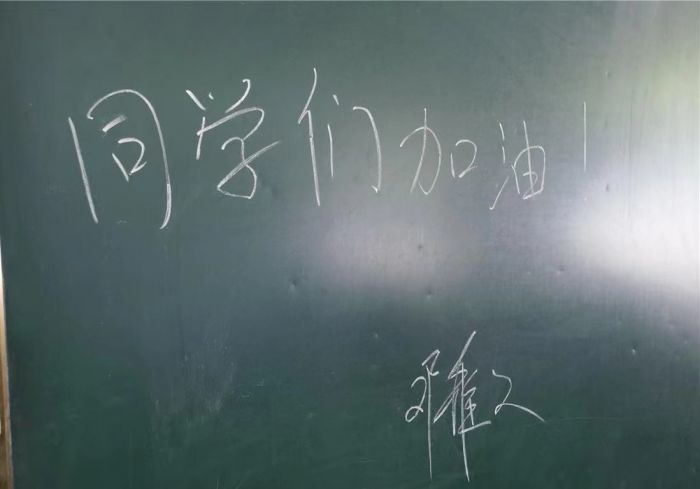 同学们加油！